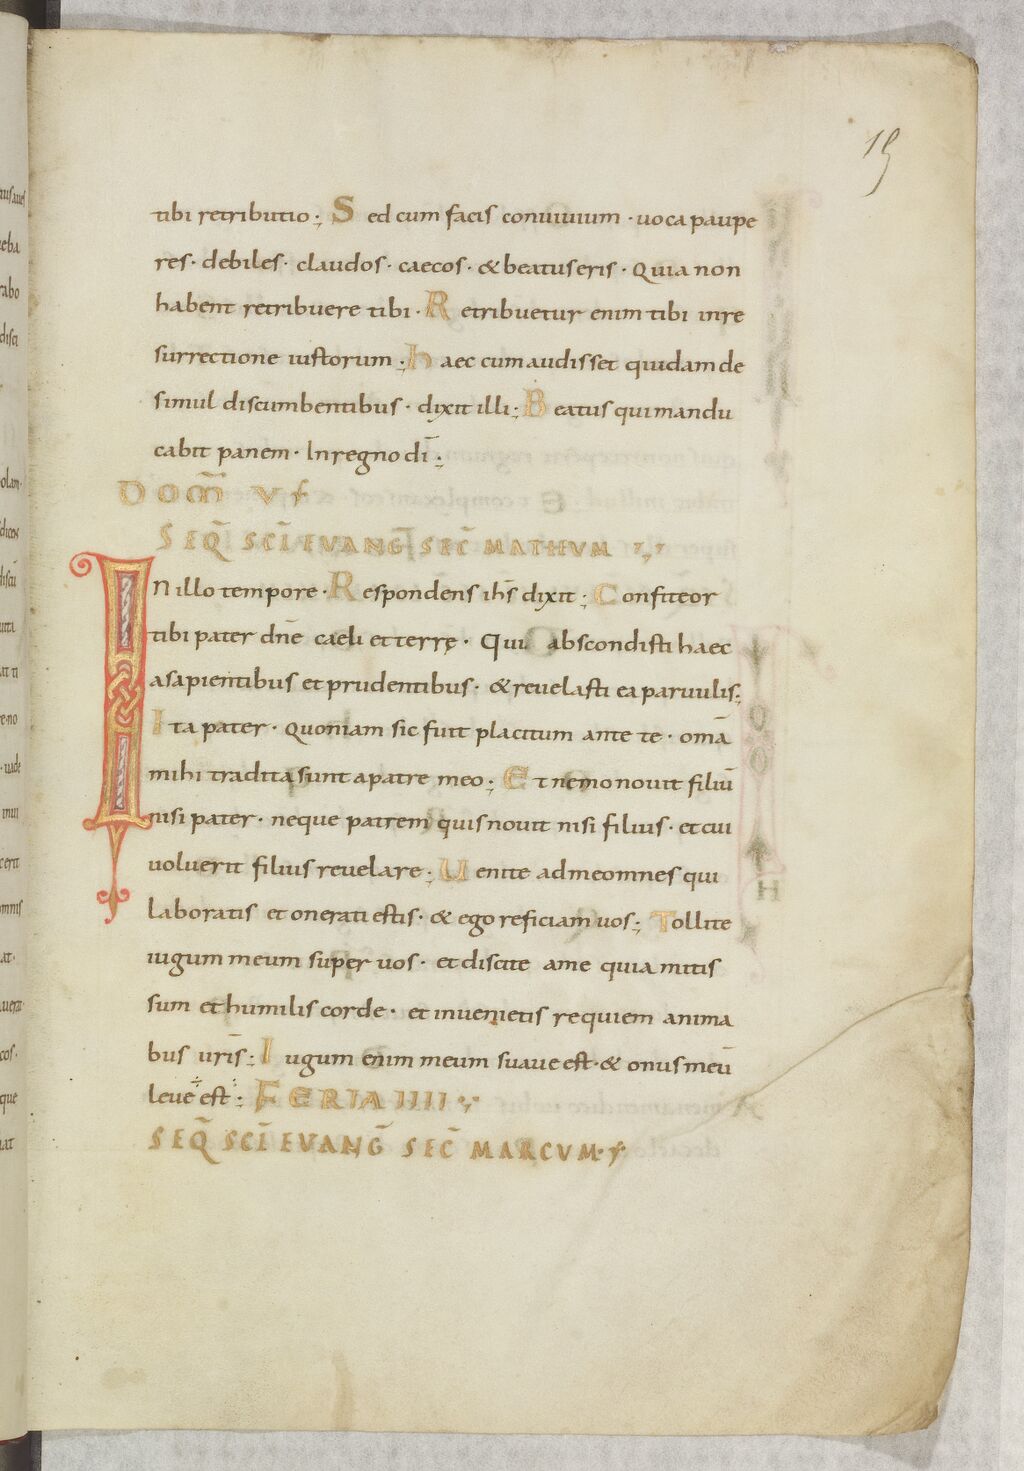 19
tibi retributio ; Sed cum facis conuiuium · uoca paupe
res · debiles · claudos · caecos · & beatus eris · Quia non
habent retribuere tibi · Retribuetur enim tibi in re
surrectione iustorum ; haec cum audisset quidam de
simul discumbentibus · dixit illi ; Beatus qui mandu
cabit panem · In regno dī ;
DOM̄ V
SEQ̄ SCĪ EVANḠ SEC̄ MATHVM
IN illo tempore · Respondens ihs̄ dixit ; Confiteor
tibi pater dnē caeli et terrę · Qui abscondisti haec
a sapientibus et prudentibus · & reuelasti ea paruulis ;
Ita pater · quoniam sic fuit placitum ante te · omā
mihi tradita sunt a patre meo ; Et nemo nouit filiū
nisi pater · neque patrem quis nouit nisi filius · et cui
uoluerit filius reuelare ; Uenite ad me omnes qui
laboratis et onerati estis · & ego reficiam uos ; Tollite
iugum meum super uos · et discite a me quia mitis
sum et humilis corde · et inuenietis requiem anima
bus urīs ; Iugum enim meum suaue est · & onus meū
leue est ; FERIA IIII
SEQ̄ SCĪ EVANḠ SEC̄ MARCVM